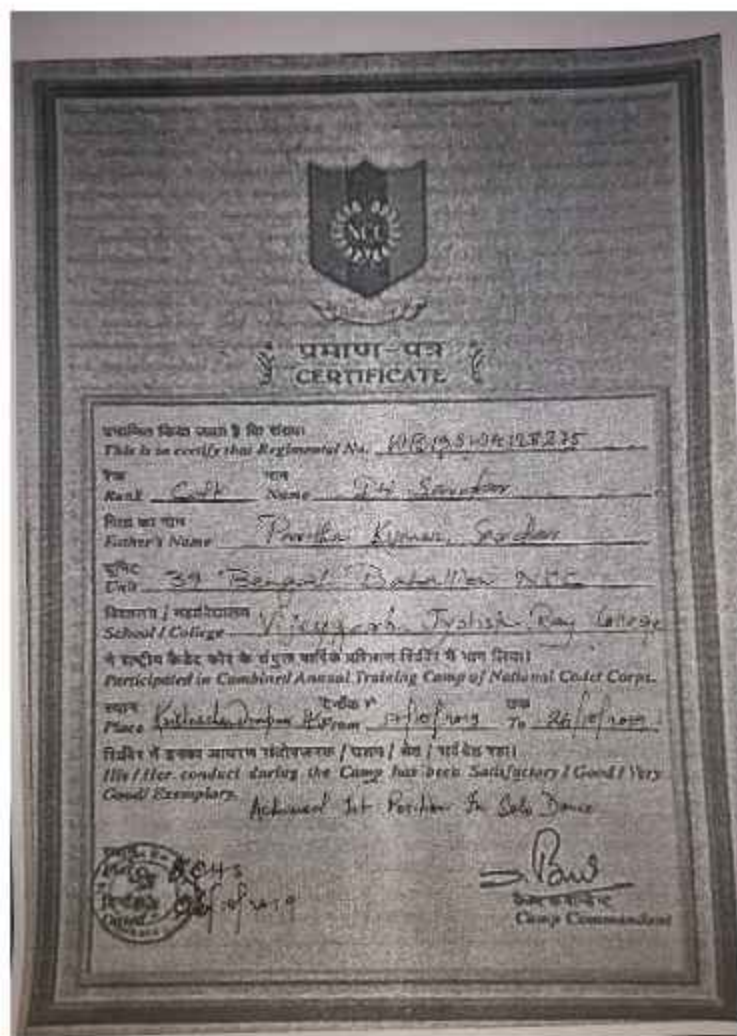 NCC
प्रमाण-पत्र
CERTIFICATE
प्रमाणित किया जाता है कि संख्या
This is to certify that Regimental No.
रैंक नाम
Rank Cdt Name Sardar
पिता का नाम
Father's Name Partha Kumar Sardar
यूनिट
Unit 39 Bengal Battalion NCC
विद्यालय / महाविद्यालय
School / College Vijaygarh Jyotish Ray College
ने राष्ट्रीय कैडेट कोर के संयुक्त वार्षिक प्रशिक्षण शिविर में भाग लिया।
Participated in Combined Annual Training Camp of National Cadet Corps.
स्थान दिनाँक से तक
Place From 17/10/2019 To 26/10/2019
शिविर में इनका आचरण संतोषजनक / उत्तम / श्रेष्ठ / सर्वश्रेष्ठ रहा।
His / Her conduct during the Camp has been Satisfactory / Good / Very
Good / Exemplary.
Achieved 1st Position In Solo Dance
Dated 26/10/2019
कैम्प कमान्डेन्ट
Camp Commandant